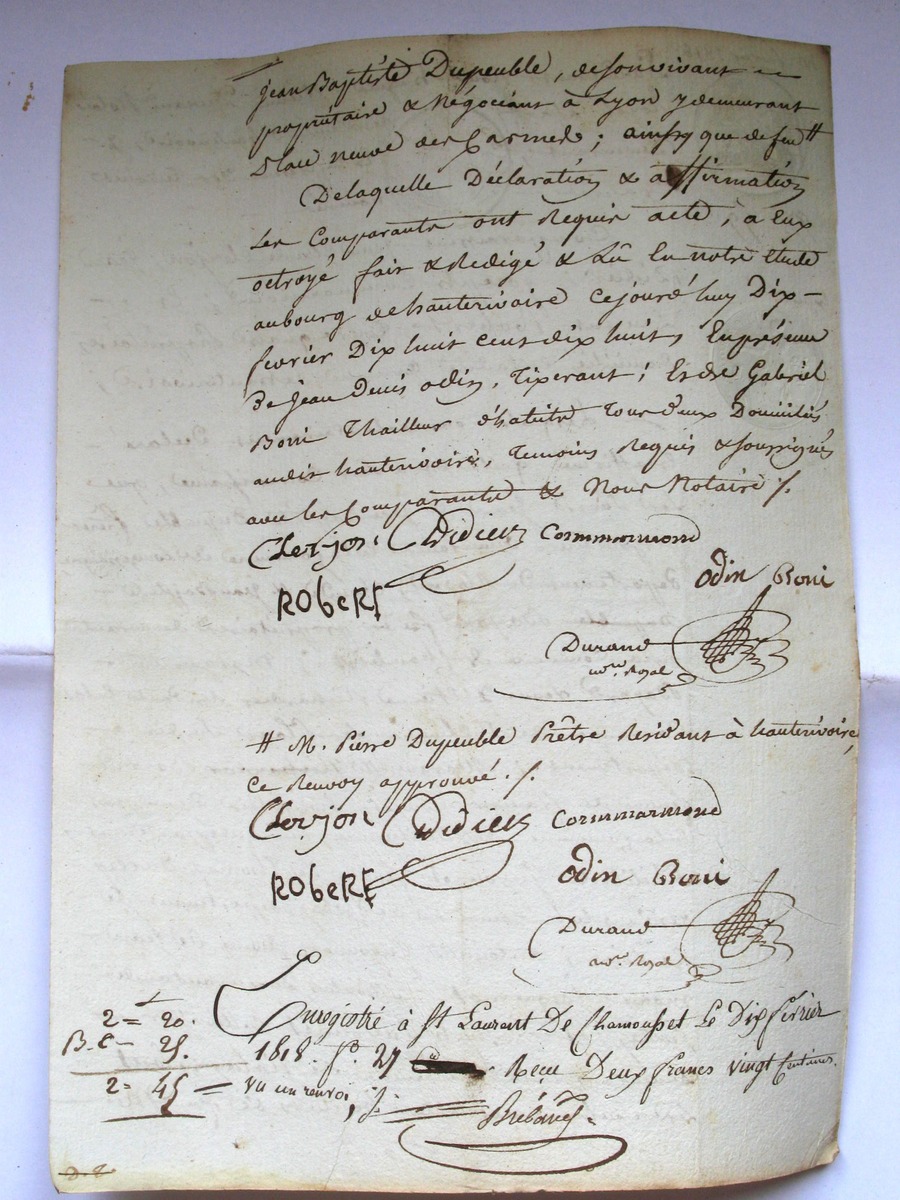 Jean Baptiste Dupeuble, de son vivant
propriétaire & Négociant à Lyon y demeurant
Place neuve des Carmes ; ainsy que de feu #
De laquelle Déclaration & affirmation
Les Comparants ont Requis acte, a Eux
octroyé fait & Redigé & Lû En notre étude
au bourg de hauterivoire Cejourd'huy Dix-
fevrier Dix huit cent dix huit, En présence
De Jean Denis odin, Tixerant ; Et de Gabriel
Boni Thailleur d'habits Tous deux Domiciliés
audit hauterivoire, Temoins Requis & soussignés
avec les Comparants & Nous Notaire ./.
Clerjon Didier Commarmond
Robert
Odin Boni
Durand
nore. Royal
# M. Pierre Dupeuble Prêtre Residant à hauterivoire,
Ce Renvoy approuvé ./.
Clerjon Didier Commarmond
Robert
Odin Boni
Durand
nore. Royal
2 = 20. Enregistré à St Laurent De Chamousset Le Dix fevrier
25. 1818. fo. 27 Reçu Deux francs vingt Centimes.
2 = 45 = vu un renvoi